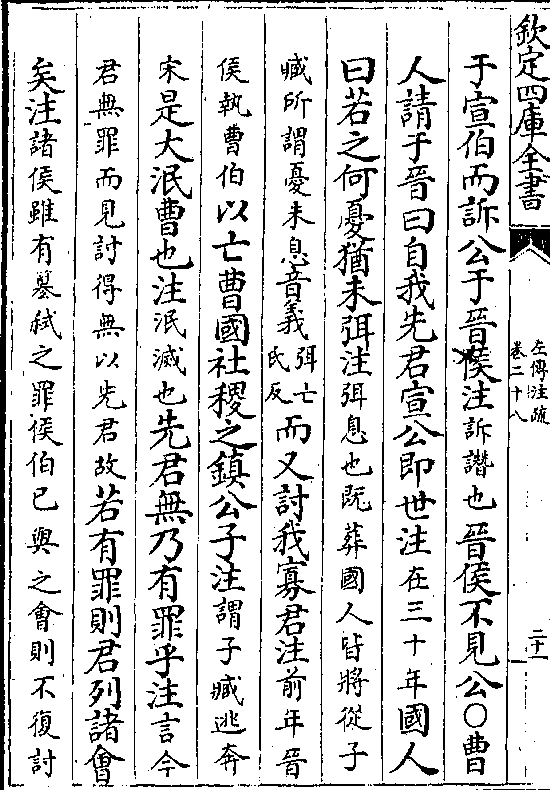 欽定四庫全書
左傳注疏
卷二十八
二十一
于宣伯而訴公于晉侯注訴譖也晉侯不見公○曹
人請于晉曰自我先君宣公即世注在三十年國人
曰若之何憂猶未弭注弭息也既葬國人皆將從子
臧所謂憂未息音義弭亡氏反而又討我寡君注前年晉
侯執曹伯以亡曹國社稷之鎮公子注謂子臧逃奔
宋是大泯曹也注泯滅也先君無乃有罪乎注言今
君無罪而見討得無以先君故若有罪則君列諸會
矣注諸侯雖有簒弒之罪侯伯已與之會則不復討